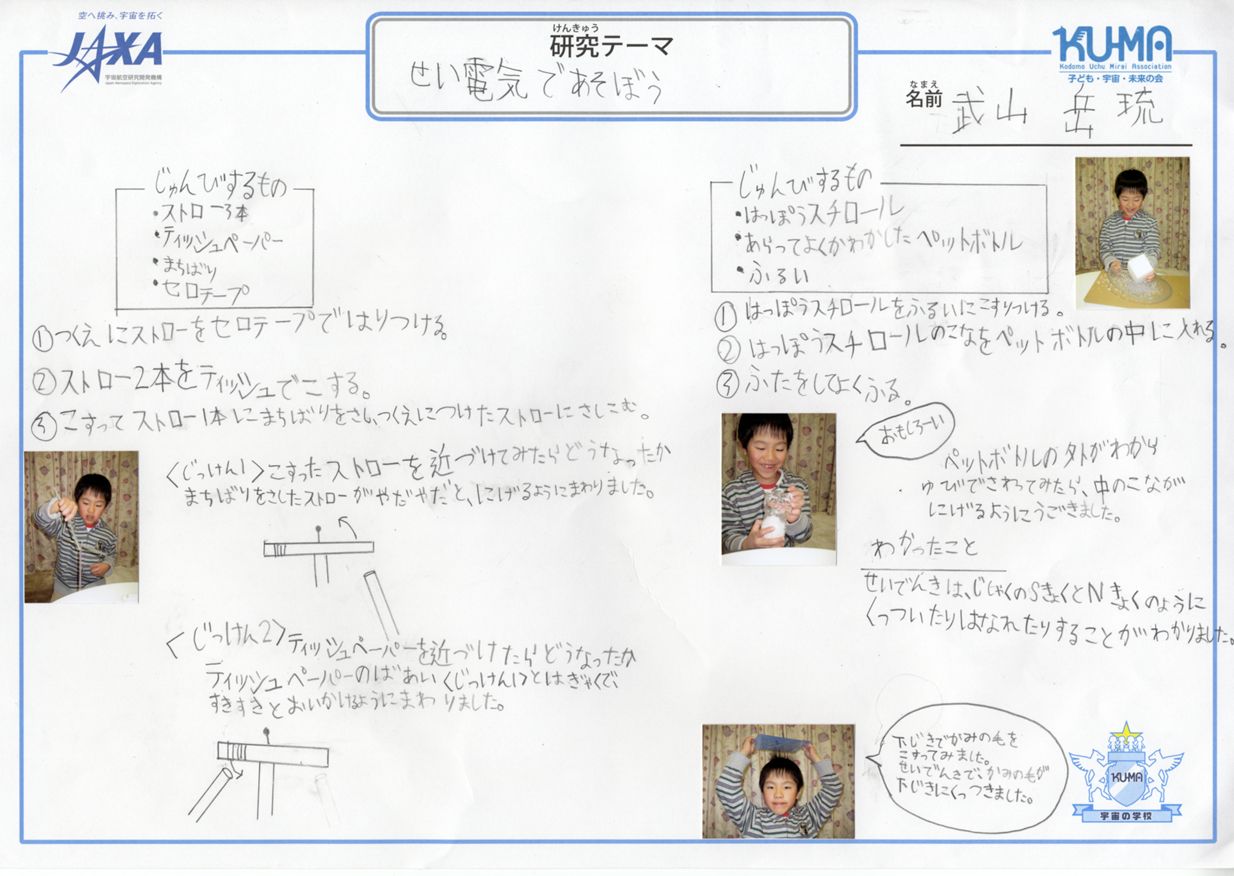 空へ挑み、宇宙を拓く
JAXA
宇宙航空研究開発機構
Japan Aerospace Exploration Agency
けんきゅう
研究テーマ
せい電気であそぼう
KU-MA
Kodomo Uchu Mirai Association
子ども・宇宙・未来の会
なまえ
名前 武山 岳琉
じゅんびするもの
・ストロー3本
・ティッシュペーパー
・まちばり
・セロテープ
①つくえにストローをセロテープではりつける。
②ストロー2本をティッシュでこする。
③こすってストロー1本にまちばりをさし、つくえにつけたストローにさしこむ。
<じっけん1>こすったストローを近づけてみたらどうなったか
まちばりをさしたストローがやだやだと、にげるようにまわりました。
<じっけん2>ティッシュペーパーを近づけたらどうなったか
ティッシュペーパーのばあい<じっけん1>とはぎゃくで、
すきすきとおいかけるようにまわりました。
じゅんびするもの
・はっぽうスチロール
・あらってよくかわかしたペットボトル
・ふるい
①はっぽうスチロールをふるいにこすりつける。
②はっぽうスチロールのこなをペットボトルの中に入れる。
③ふたをしてよくふる。
おもしろーい
ペットボトルの外がわから
ゆびでさわってみたら、中のこなが
にげるようにうごきました。
わかったこと
せいでんきは、じしゃくのSきょくとNきょくのように
くっついたりはなれたりすることがわかりました。
下じきでかみの毛を
こすってみました。
せいでんきで、かみの毛が
下じきにくっつきました。
KUMA
宇宙の学校